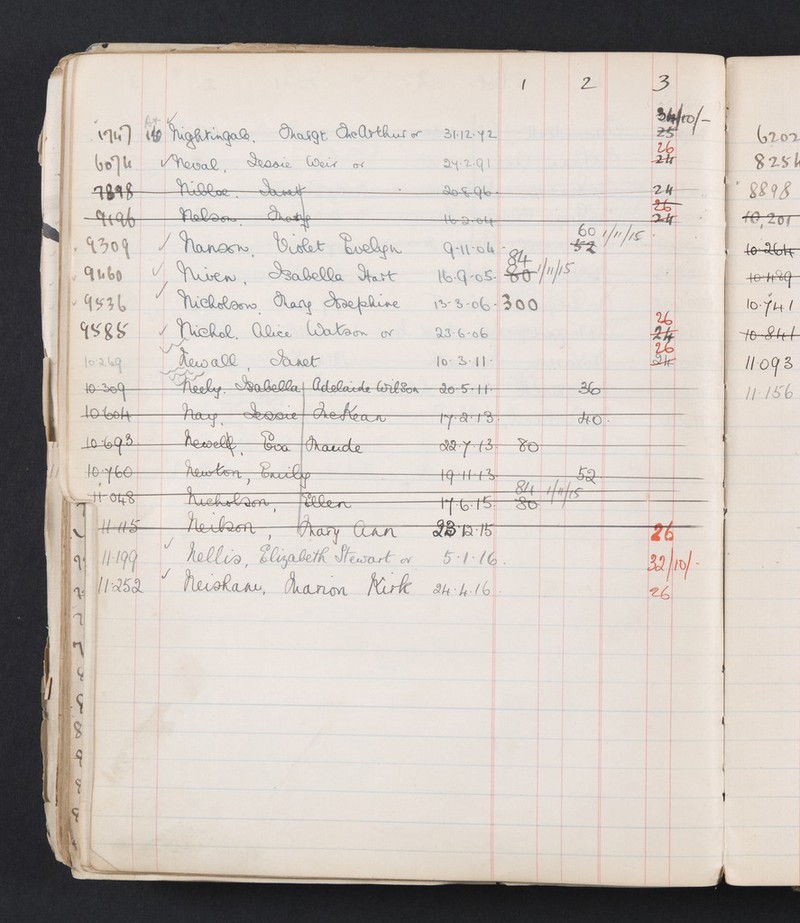 1 2 3
34/10/-
1747 16 Nightingale, Margt McArthur or 31·12·92 25
26
6074 Neval, Jessie Weir or 24·2·91 24
7898 Nibloe, Janet 20·8·96 24
26
9196 Nelson, Mary 16·2·04 24
60 1/11/15
9309 Nanson, Violet Evelyn 9·11·04 52
84 1/11/15
9460 Niven, Isabella Hart 16·9·05 80
9536 Nicholson, Mary Josephine 13·3·06 300
26
9585 Nichol, Alice Watson or 23·6·06 24
26
10·269 Newall, Janet 10·3·11 24
10·309 Neely, Isabella Adelaide Wilson 20·5·11 36
10604 Nay, Jessie McKean 17·2·13 40
10·693 Newell, Eva Maude 22·7·13 80
10·760 Newton, Emily 19·11·13 52
84 1/11/15
11·048 Nicholson, Ellen 17·6·15 80
11·115 Neilson, Mary Ann 23·12·15 26
11·199 Nellis, Elizabeth Stewart or 5·1·16 32/10/-
11·252 Neisham, Marion Kirk 24·4·16 26
6202
8254
8898
10,201
10·264
10·489
10·741
10·841
11093
11·156